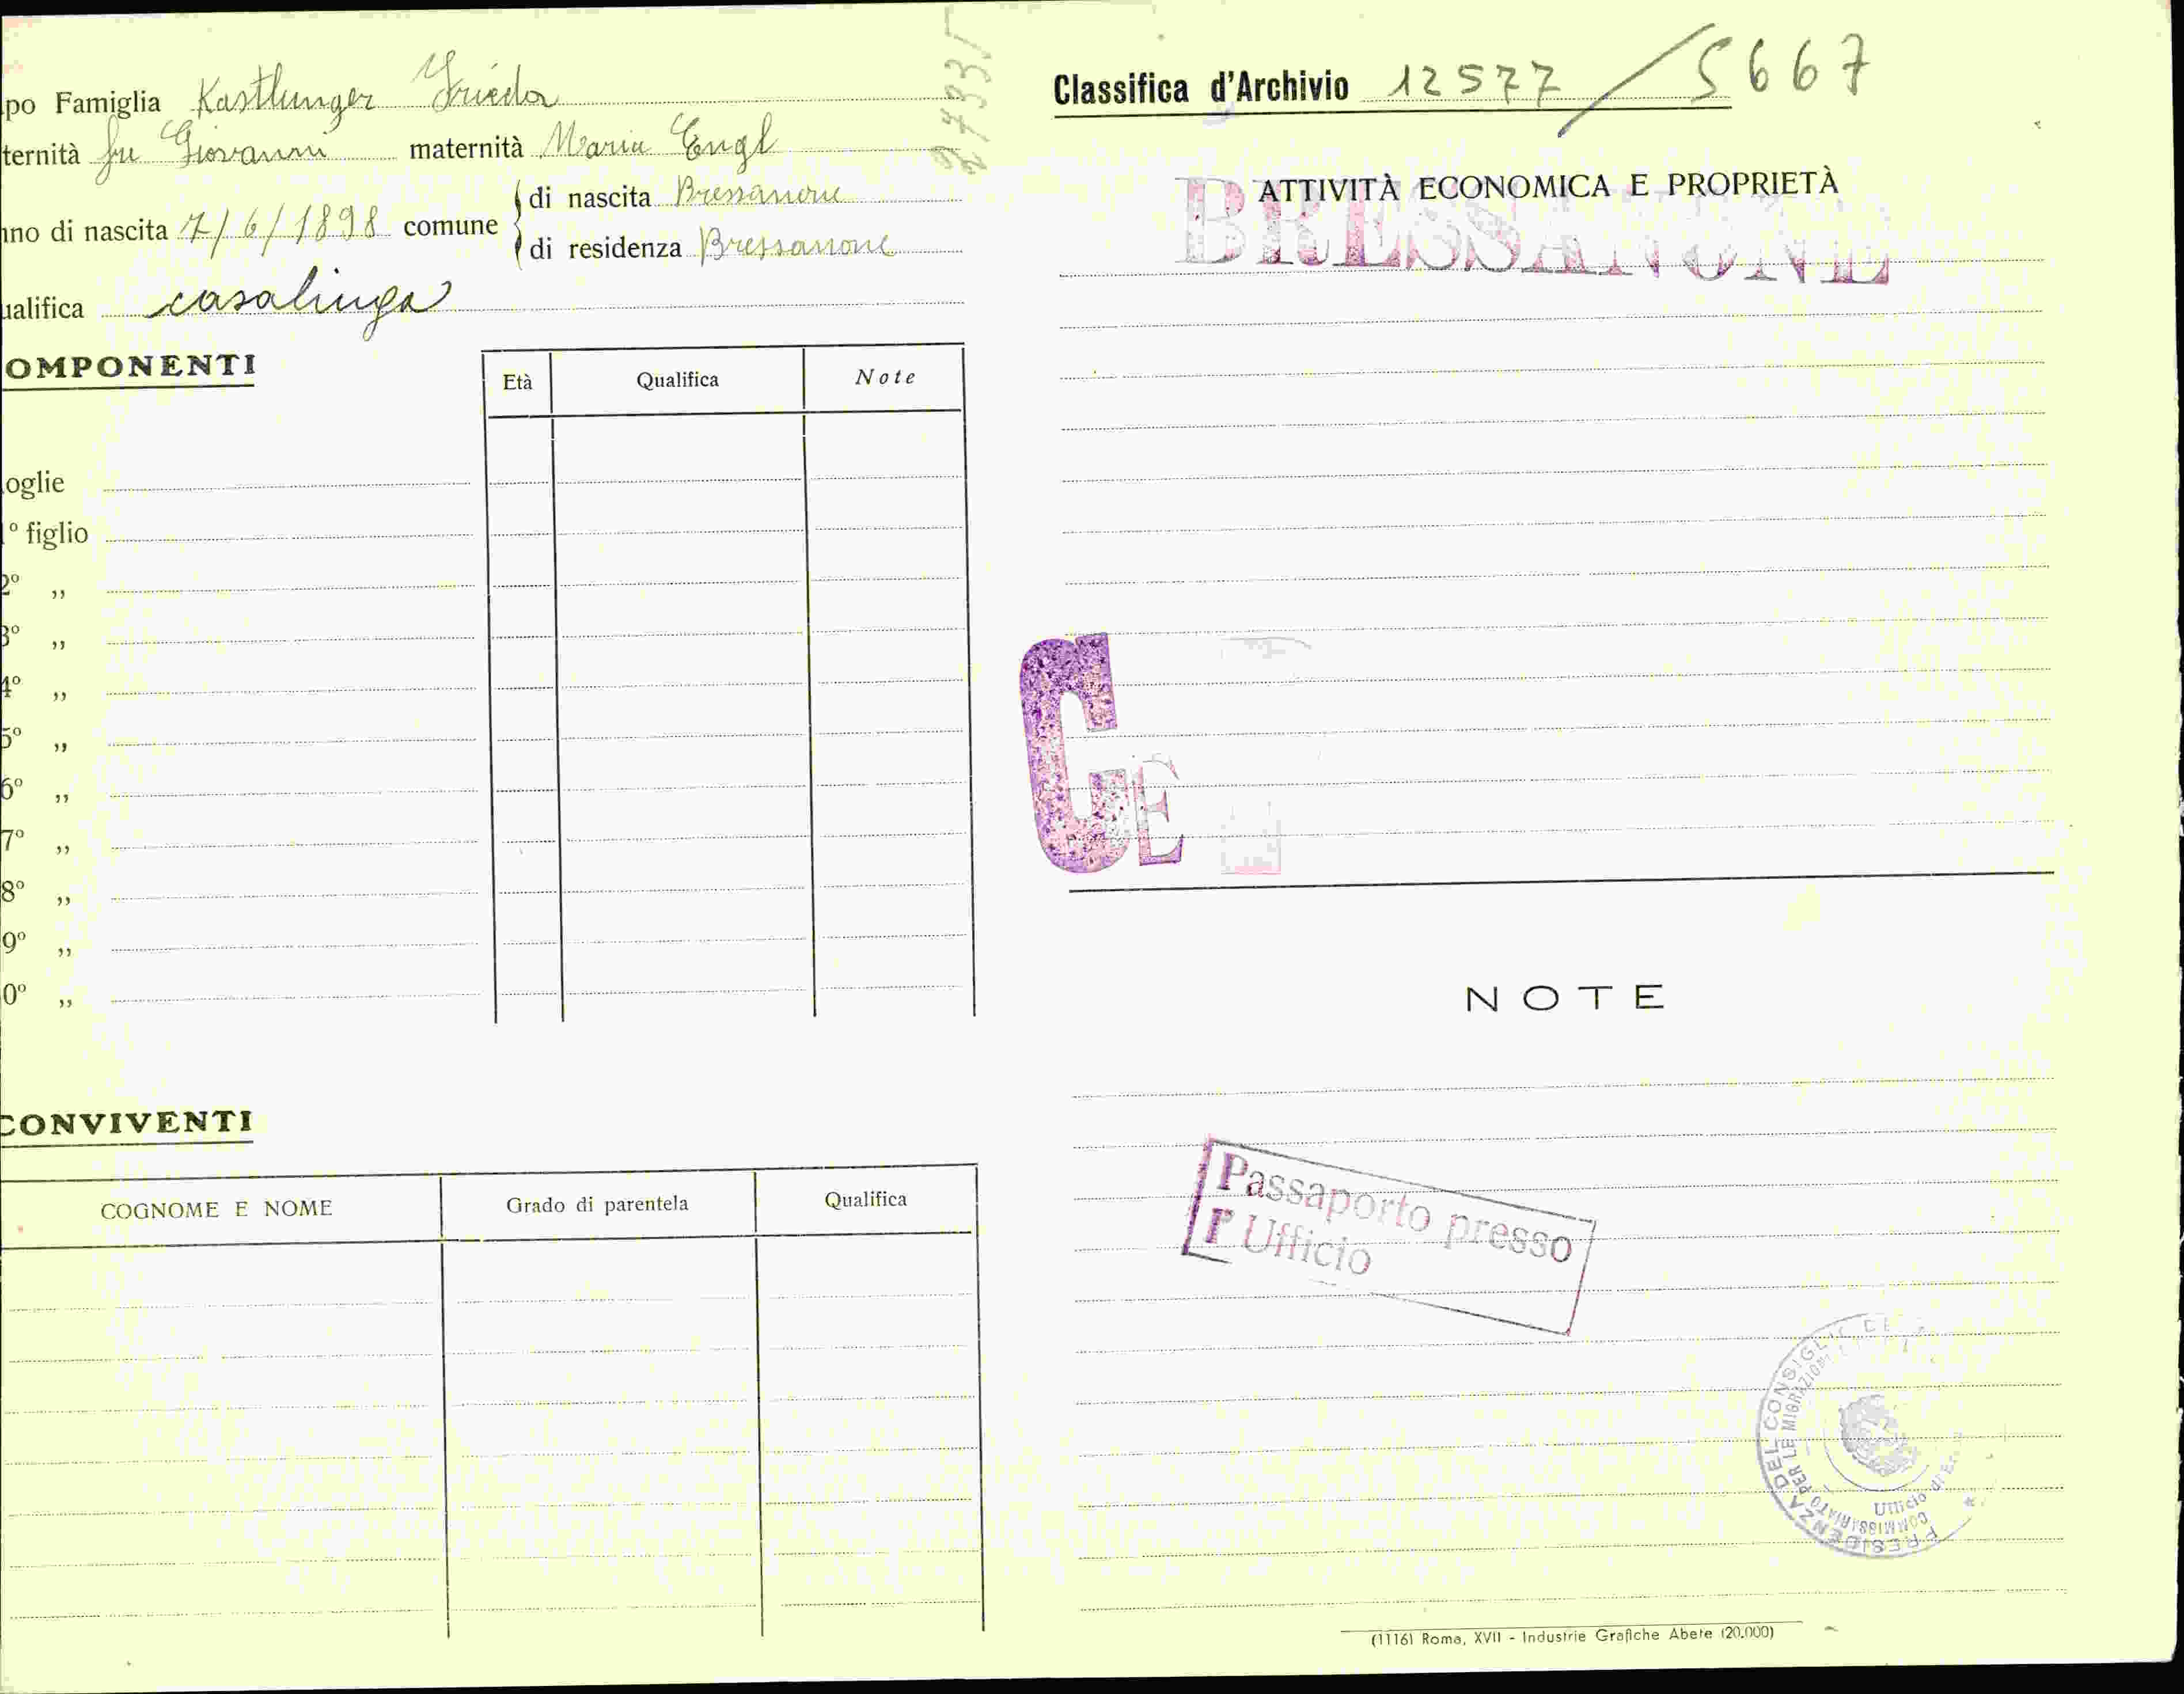 po Famiglia Kastlunger Frieda
ternità fu Giovanni maternità Maria Engl
nno di nascita 7/6/1898 comune
di nascita Bressanone
di residenza Bressanone
ualifica casalinga
OMPONENTI
Età Qualifica Note
oglie
1° figlio
2° „
3° „
4° „
5° „
6° „
7° „
8° „
9° „
0° „
CONVIVENTI
COGNOME E NOME Grado di parentela Qualifica
Classifica d'Archivio 12577/5667
ATTIVITÀ ECONOMICA E PROPRIETÀ
BRESSANONE
C
E
NOTE
Passaporto presso
l'Ufficio
PRESIDENZA DEL CONSIGLIO DEI
COMMISSARIATO PER LE MIGRAZIONI
Ufficio di
(1116) Roma, XVII - Industrie Grafiche Abete (20.000)